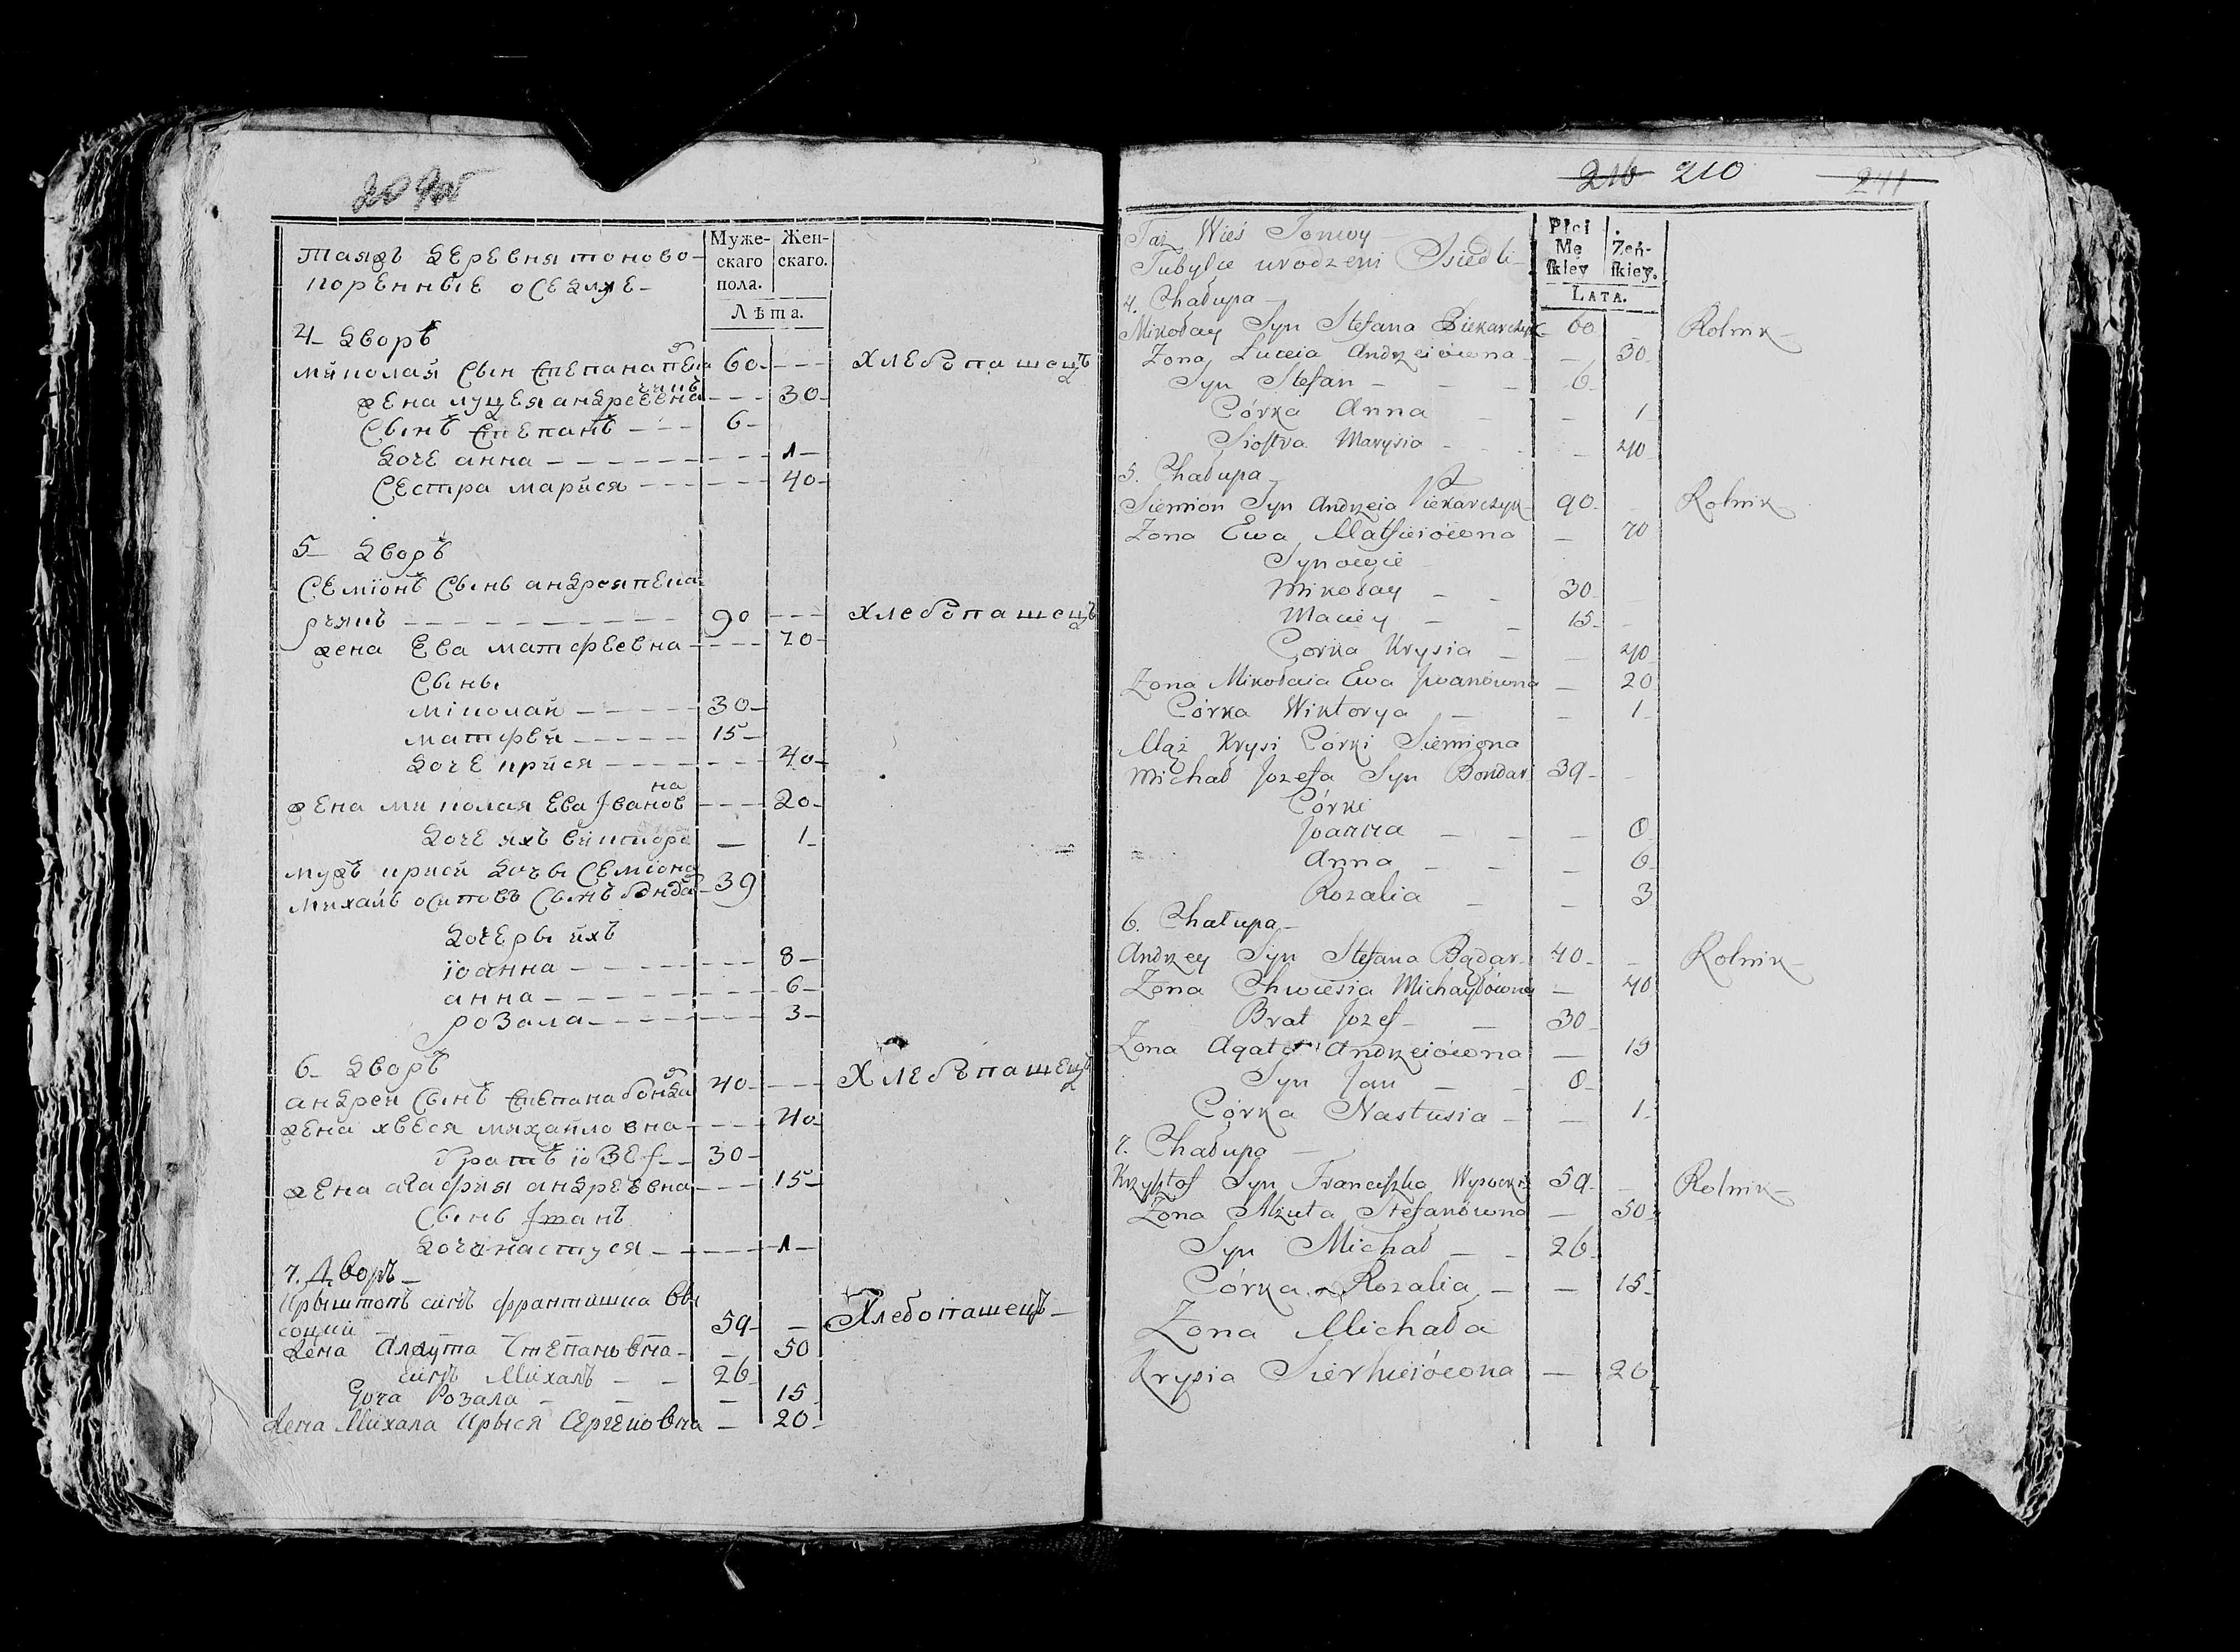 209об
Муже- Жен-
скаго скаго.
пола.
Лѣта.
таяжъ деревня тоново
коренные оседлые
4- дворъ
миколай сын степана пека 60 - хлебопашецъ
рчикъ
жена луцея андреевна - 30
сынъ степанъ - 6
доче анна - 1
сестра марися - 40
5- дворъ
семіонъ сынъ андрея пека
рчикъ - 90 - хлебопашецъ
жена ева матфеевна - 70
сыны
міколай - 30
матфей - 15
доче крися - 40
на
жена миколая ева Іванов - 20
доче ихъ викторе - 1
мужъ криси дочы семіона
михайъ осиповъ сынъ бонда 39
дочеры ихъ
іоанна - 8
анна - 6
розала - 3
6- дворъ
андрей сынъ степана бонда 40 - Хлебъпашецъ
жена хвеся михайловна - 40
братъ іозеf - 30
жена агафия андреевна - 15
сынъ
доче настуся - 1
7. дворъ
Крыштопъ синъ франтишка Вы
соцки - 59 - Хлебопашецъ
жена Алжута Степановна - 50
синъ Михалъ - 26
доча Розала - 15
жена Михала Крыся Сергеиовна - 20
216 210 241
Taż Wieś Tonwy
Tubylce urodzeni Osiedli
Płci
Mę Żeń-
ſkiey ſkiey.
LATA.
4. Chałupa
Mikołay Syn Stefana Piekarczyk - 60 - Rolnik
Zona Luceia Andrzeiówna - 30
Syn Stefan - 6
Córka Anna - 1
Sioſtra Marysia - 40
5. Chałupa
Siemion Syn Andrzeia Piekarczyk - 90 - Rolnik
Zona Ewa Matfieiówna - 70
Synowie
Mikołay - 30
Maciey - 15
Corka Krysia - 40
Zona Mikołaia Ewa Jwanówna - 20
Córka Wiktorya - 1
Mąż Krysi Córki Siemiona
Michał Jozefa Syn Bondar 39
Córki
Joanna - 8
Anna - 6
Rozalia - 3
6. Chałupa
Andrzey Syn Stefana Bądar 40 - Rolnik
Zona Chwiesia Michayłówna - 40
Brat Jozef - 30
Zona Agata Andrzeiówna - 15
Syn Jan - 0
Córka Nastusia - 1
7. Chałupa
Krzyſztof Syn Franciſzka Wysocki 59 - Rolnik
Zona Alżuta Stefanówna - 50
Syn Michał - 26
Córka Rozalia - 15
Zona Michała
Krysia Sierhieiówna - 20